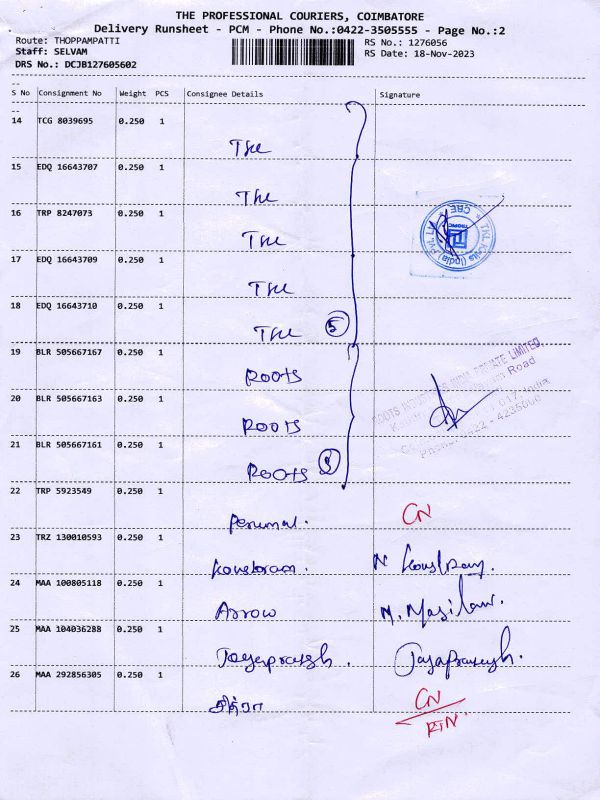 THE PROFESSIONAL COURIERS, COIMBATORE
Delivery Runsheet - PCM - Phone No.:0422-3505555 - Page No.:2
Route: THOPPAMPATTI RS No.: 1276056
Staff: SELVAM RS Date: 18-Nov-2023
DRS No.: DCJB127605602
--
S No Consignment No Weight PCS Consignee Details Signature
--
14 TCG 8039695 0.250 1
The
15 EDQ 16643707 0.250 1
The
16 TRP 8247073 0.250 1
The
17 EDQ 16643709 0.250 1
The
18 EDQ 16643710 0.250 1
The 5
19 BLR 505667167 0.250 1
Roots
20 BLR 505667163 0.250 1
Roots
21 BLR 505667161 0.250 1
Roots 3
22 TRP 5923549 0.250 1
Perumal. CN
23 TRZ 130010593 0.250 1
24 MAA 100805118 0.250 1
Arrow
25 MAA 104036288 0.250 1
Jayaprakash. Jayaprakash.
26 MAA 292856305 0.250 1
சித்ரா CN
RTN
ROOTS INDUSTRIES INDIA PRIVATE LIMITED
Road
India
Phone: 0422 - 4235000